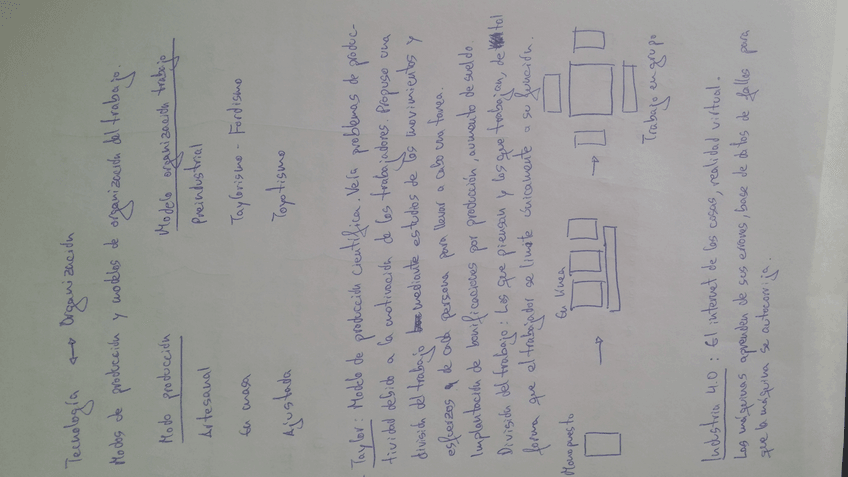 Tecnología ↔ Organización
Modos de producción y modelos de organización del trabajo.
Modo producción Modelo organización trabajo
Artesanal Preindustrial
En masa Taylorismo - Fordismo
Ajustada Toyotismo
- Taylor: Modelo de producción científica. Veía problemas de produc-
tividad debido a la motivación de los trabajadores. Propuso una
división del trabajo mediante estudios de los movimientos y
esfuerzos de cada persona para llevar a cabo una tarea.
Implantación de bonificaciones por producción, aumento de sueldo.
División del trabajo: Los que piensan y los que trabajan, de tal
forma que el trabajador se limite únicamente a su función.
Monopuesto → En línea → Trabajo en grupo
Industria 4.0: El internet de las cosas, realidad virtual.
Las máquinas aprenden de sus errores, base de datos de fallos para
que la máquina se autocorrija.